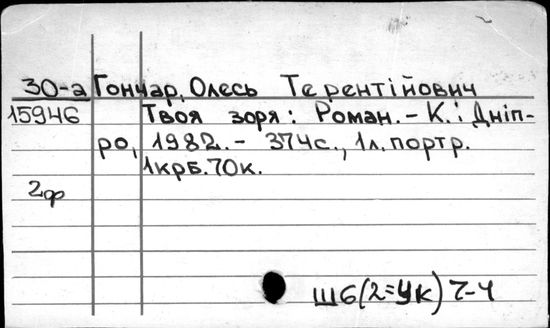 30-а Гончар, Олесь Терентійович
15946 Твоя зоря: Роман. – К.: Дніп-
ро, 1982. – 374с., 1л. портр.
1крб. 70к.
2ф
Ш6(2=Ук)7-4